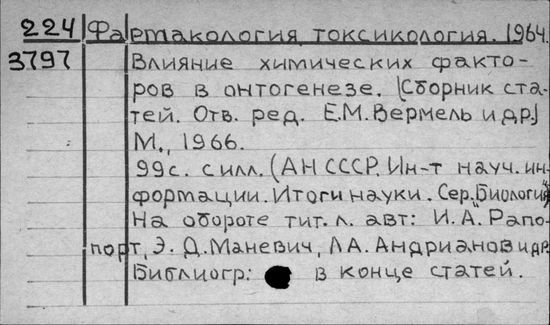 224 Фармакология, токсикология. 1964.
3797 Влияние химических факто-
ров в онтогенезе. [Сборник ста-
тей. Отв. ред. Е.М. Вермель и др.]
М., 1966.
99с. с илл. (АН СССР. Ин-т науч. ин-
формации. Итоги науки. Сер. "Биология")
На обороте тит. л. авт: И. А. Рапо-
порт, Э. Д. Маневич, Л.А. Андрианов и др.
Библиогр: в конце статей.